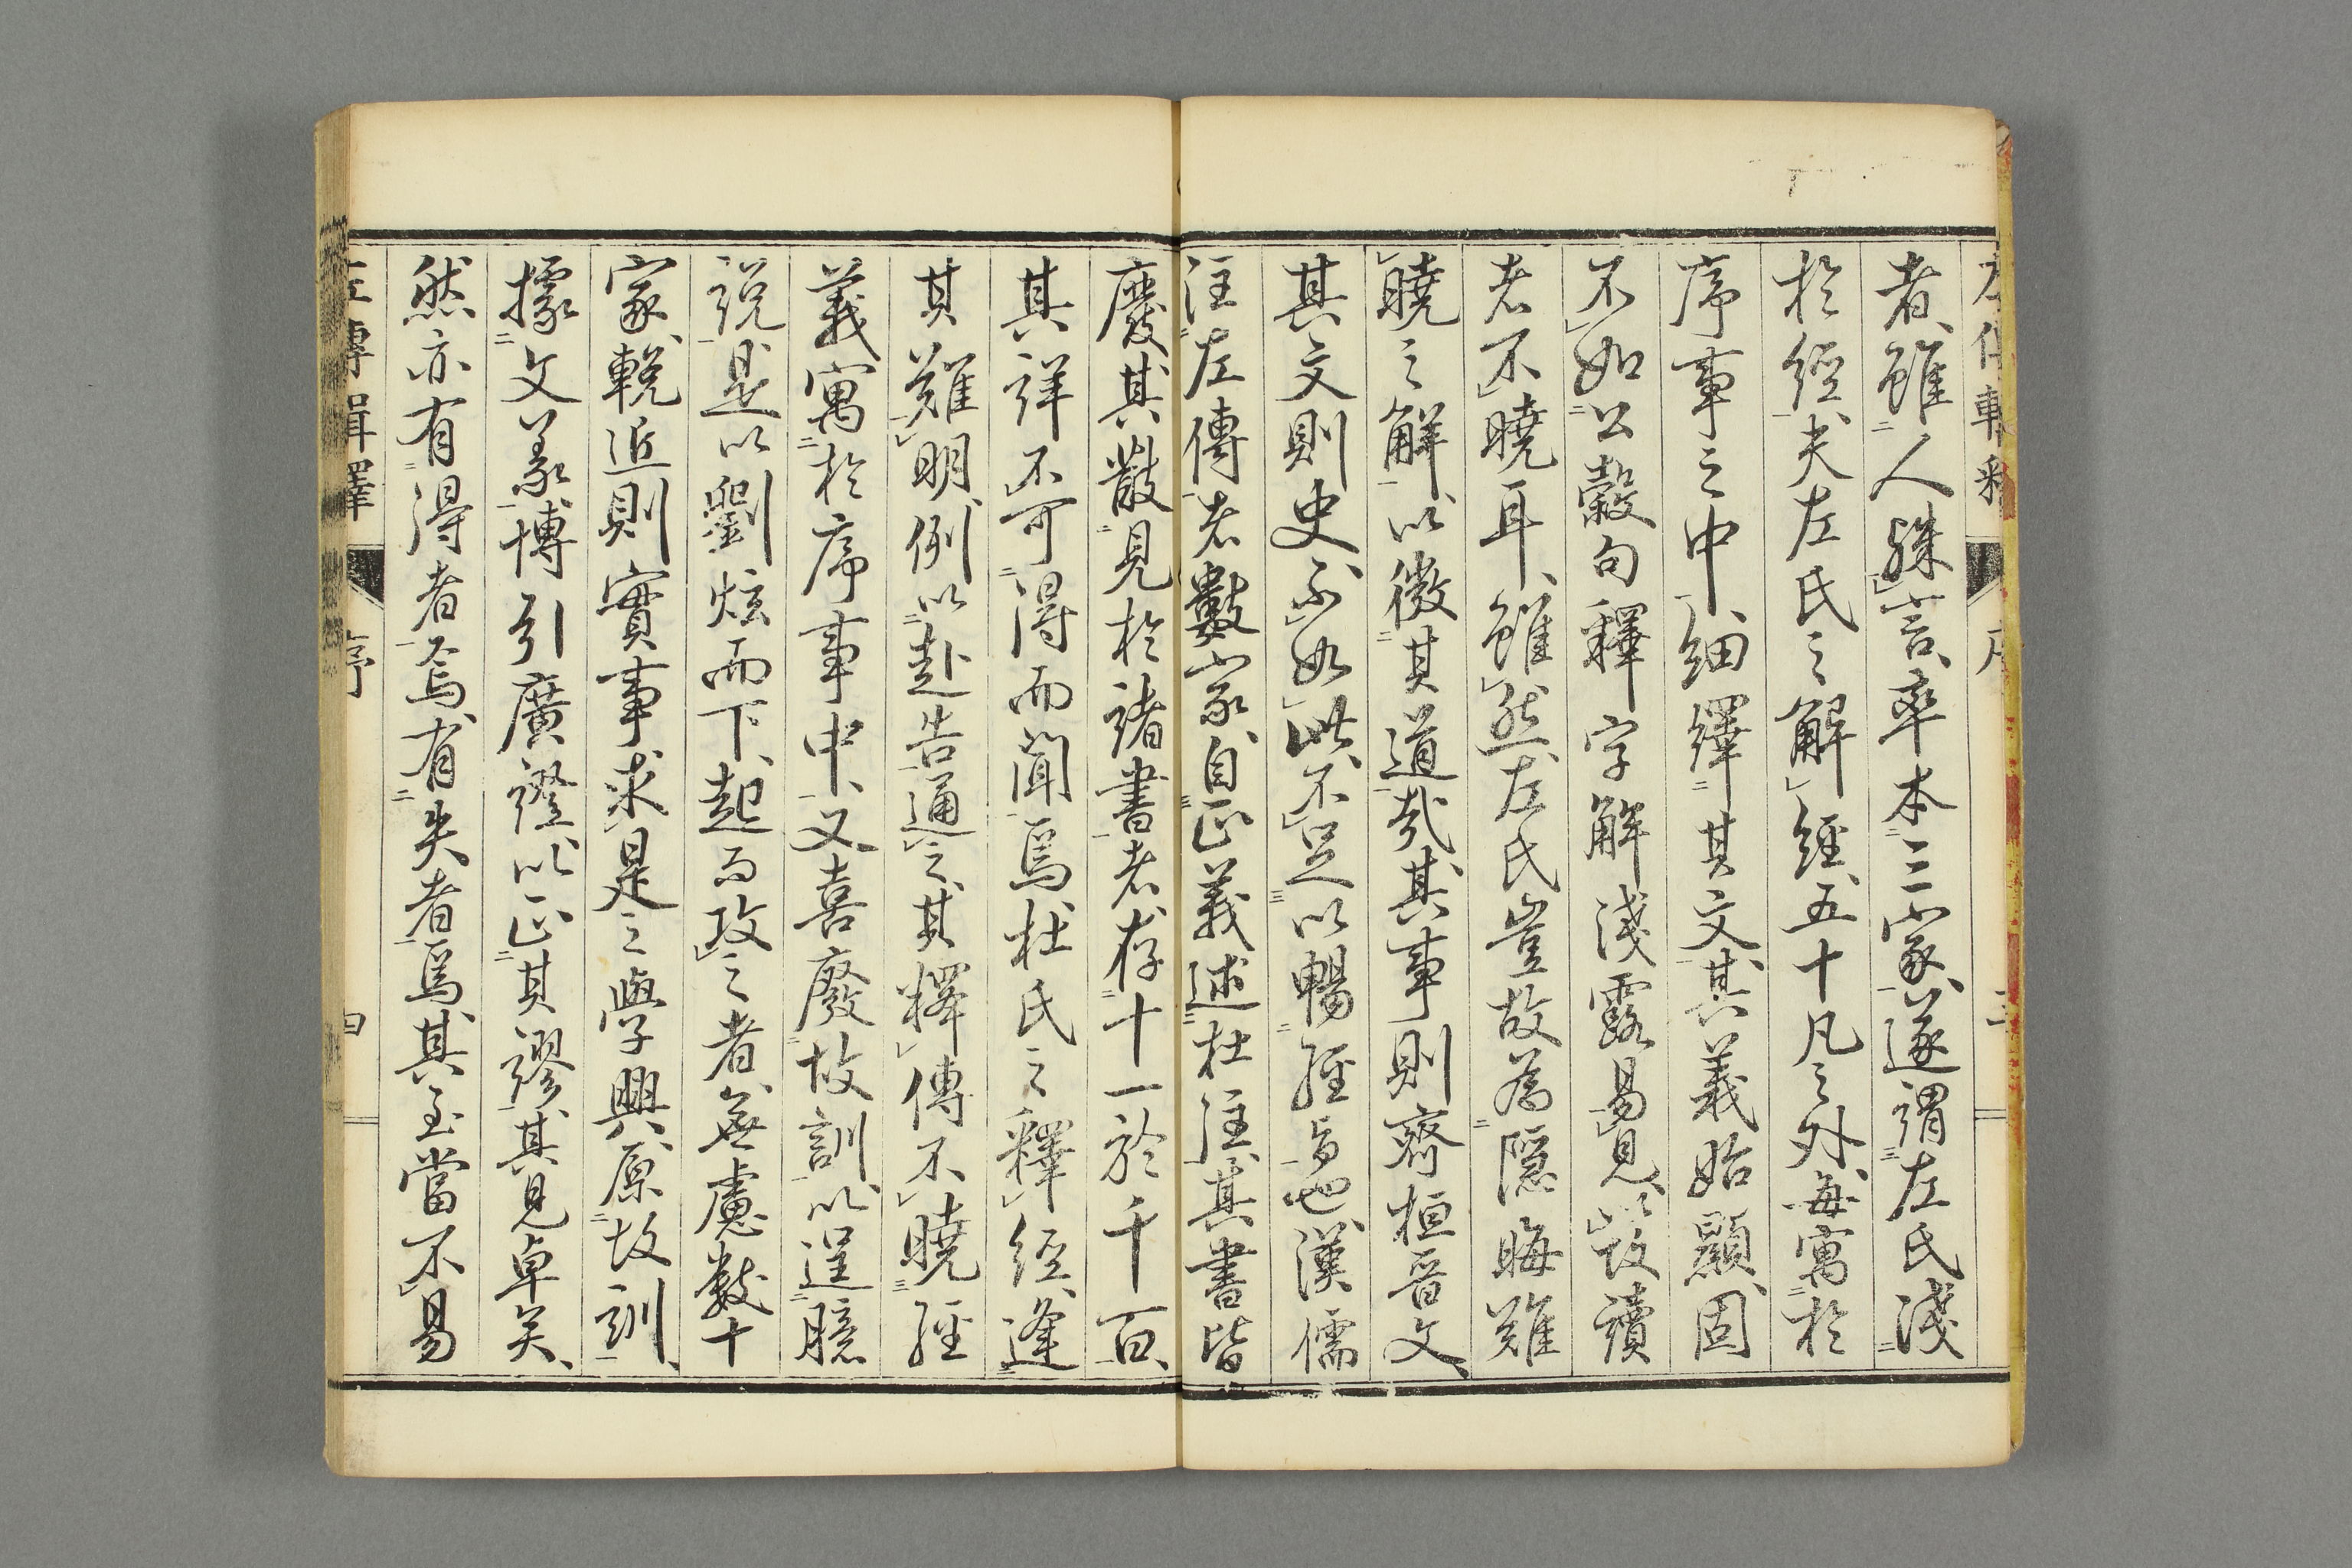 者、雖人殊言、率本二家、遂謂左氏淺
於經、夫左氏之解經、五十凡之外、每寓於
序事之中、細繹其文、其義始顯、固
不如公穀句釋字解淺露易見、以故讀
者不曉耳、雖然、左氏豈故為隱晦難
曉之解、以微其道哉、其事則齊桓晉文、
其文則史、不如此、不足以暢經旨也、漢儒
注左傳者數家、自正義述杜注、其書皆
廢、其散見於諸書者、存十一於千百、
其詳不可得而聞焉、杜氏之釋經、逢
其難明、例以赴告通之、其釋傳、不曉經
義寓於序事中、又喜廢故訓、以逞臆
說、是以劉炫而下、起而攻之者、無慮數十
家、輓近則實事求是之學興、原故訓、
據文義、博引廣證、以正其謬、其見卓矣、
然亦有得者焉、有失者焉、其至當不易
左傳輯釋 序